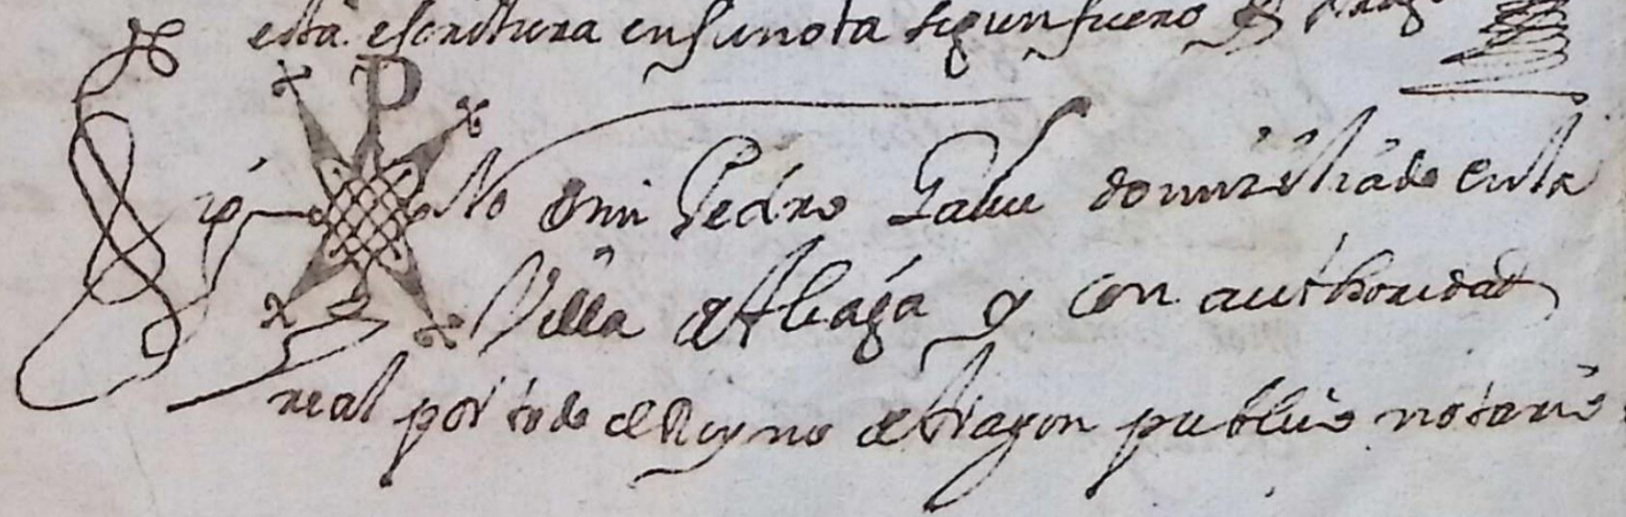 esta escritura en su nota segun fuero de Arag
P
Sig No de mi Pedro Galve domiziliado en la
Villa de Aliaga y con authoridad
real por todo el Reyno de Aragon publico notario